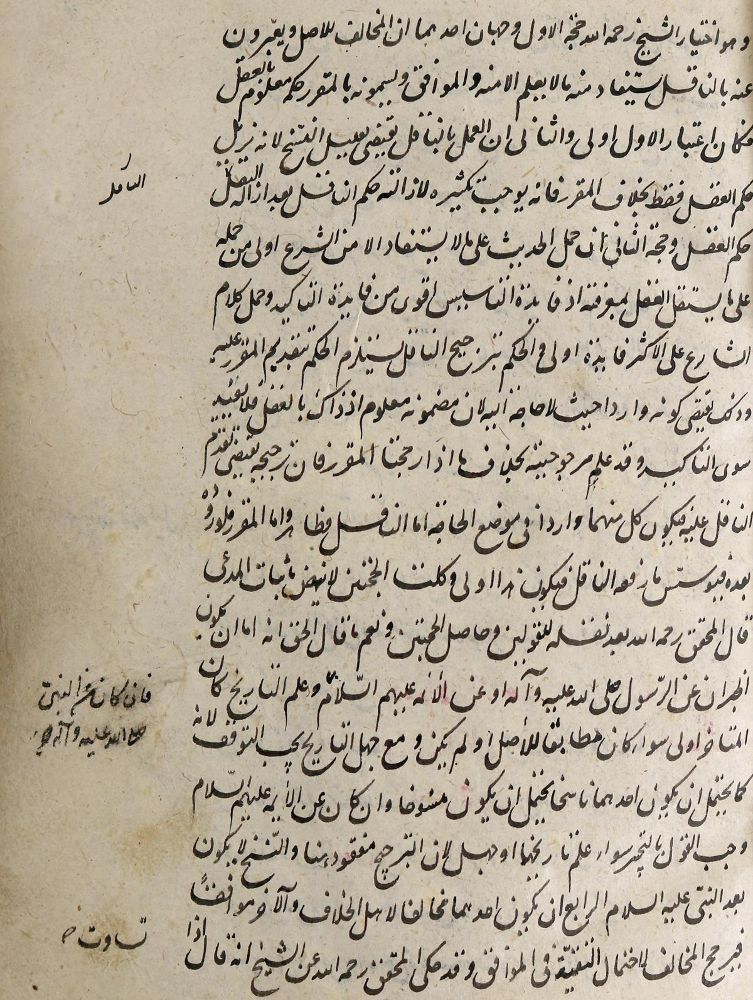 وهو اختيار الشيخ رحمه الله حجة الاول وجهان احدهما ان المخالف للاصل ويعبرون
عنه بالناقل يستفاد منه ما لا يعلم الا منه والموافق ويسمونه بالمقرر حكمه معلوم بالعقل
فكان اعتبار الاول اولى والثانى ان العمل بالناقل يقتضى تقليل النسخ لانه يزيل
حكم العقل فقط بخلاف المقرر فانه يوجب تكثيره لازالته حكم الناقل بعد ازالة الناقل
الناقل
حكم العقل وحجة الثانى ان حمل الحديث على ما لا يستفاد الا من الشرع اولى من حمله
على ما يستقل العقل بمعرفته اذ فايدة التاسيس اقوى من فايدة التاكيد وحمل كلام
الشارع على الاكثر فايدة اولى فالحكم بترجيح الناقل يستلزم الحكم بتقديم المقرر عليه
وذلك يقتضى كونه واردا حيث لا حاجة اليه لان مضمونه معلوم اذ ذاك بالعقل فلا يفيد
سوى التاكيد وقد علم مرجوحيته بخلاف ما اذا رجحنا المقرر فان ترجيحه يقتضى تقدم
الناقل عليه فيكون كل منهما واردا فى موضع الحاجة اما الناقل فظاهر واما المقرر فلوروده
بعده فيؤسس ما رفعه الناقل فيكون هذا اولى وكلتا الحجتين لا ينهض باثبات المدعى
قال المحقق رحمه الله بعد نقله للقولين وحاصل الحجتين ونعم ما قال الحق انه اما ان يكون
الخبران عن الرسول صلى الله عليه وآله او عن الأئمة عليهم السلام وعلم التاريخ كان
فان كان عن النبى
صلى الله عليه وآله
المتاخر اولى سواء كان مطابقا للأصل او لم يكن ومع جهل التاريخ يجب التوقف لانه
كما يحتمل ان يكون احدهما ناسخا يحتمل ان يكون منسوخا وان كان عن الائمة عليهم السلام
وجب القول بالتخيير سواء علم تاريخهما او جهل لان الترجيح مفقود هنا والنسخ لا يكون
بعد النبى عليه السلام الرابع ان يكون احدهما مخالفا لاهل الخلاف والآخر موافقا
فيرجح المخالف لاحتمال التقية فى الموافق وقد حكى المحقق رحمه الله عن الشيخ انه قال اذا
تساوت